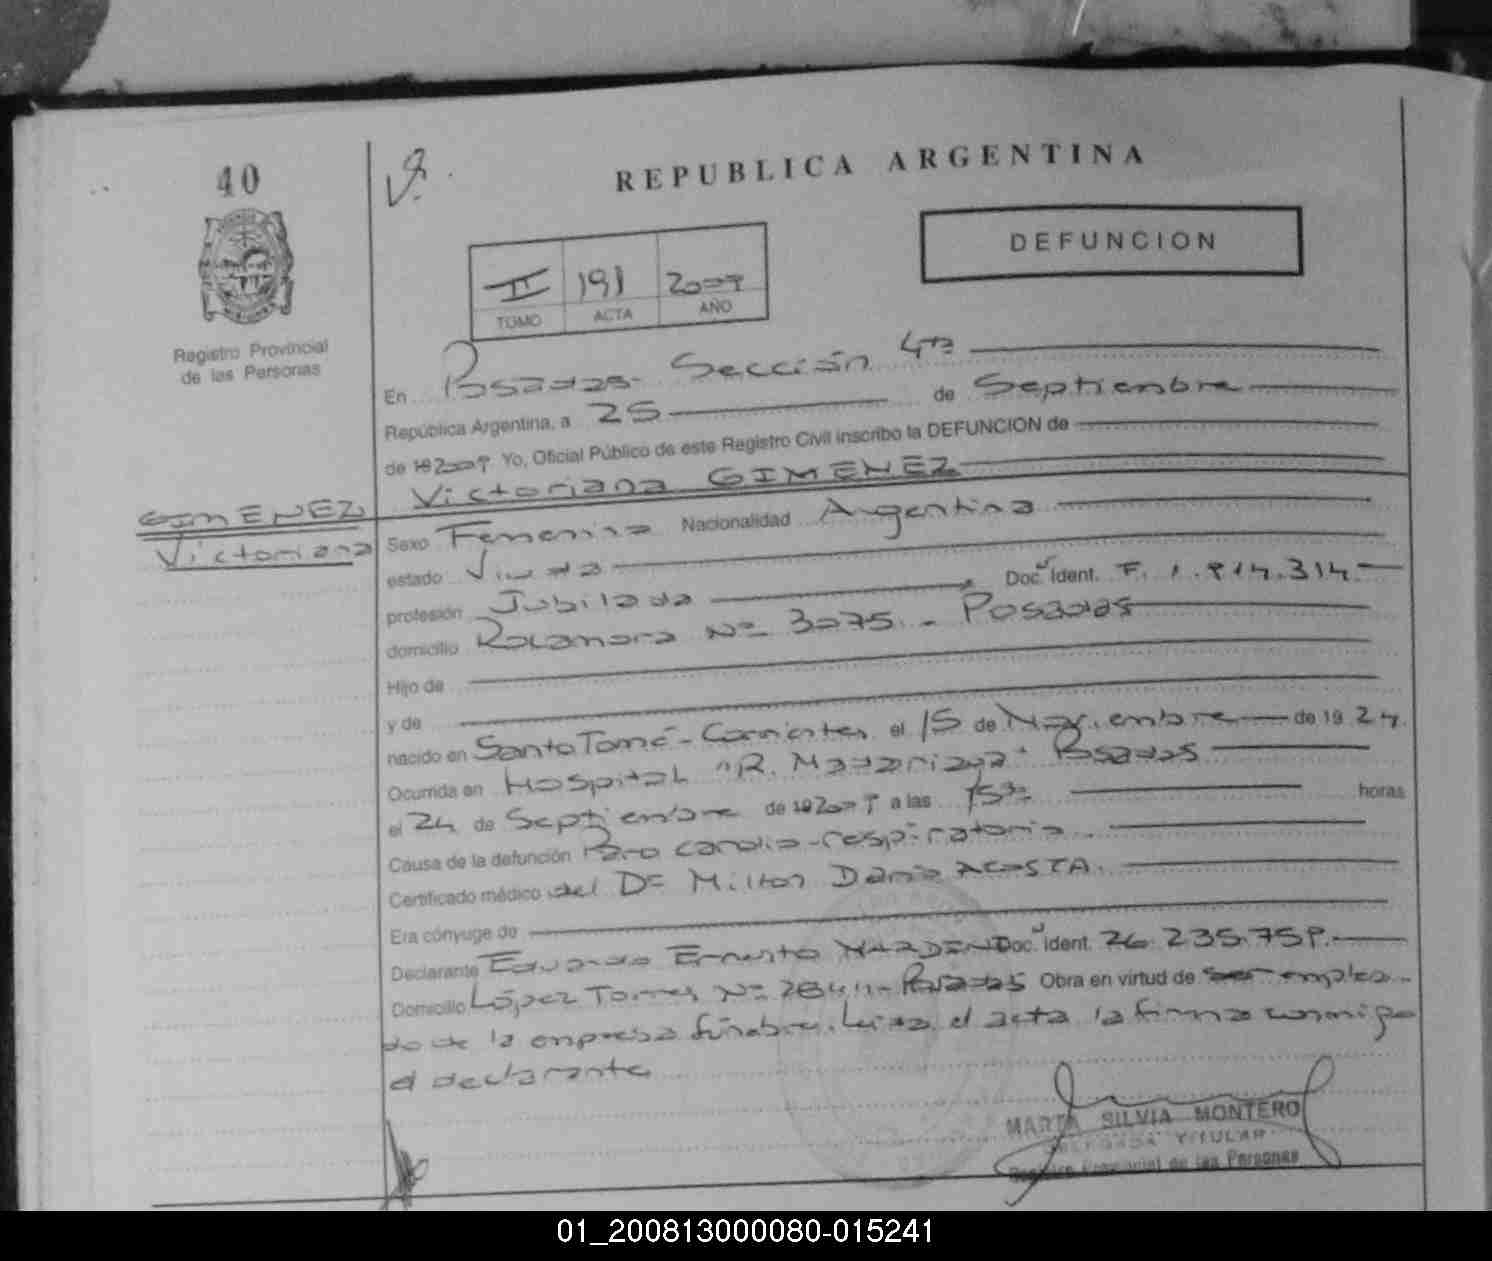 40
REPUBLICA ARGENTINA
DEFUNCION
II 191 2009
TOMO ACTA AÑO
Registro Provincial
de las Personas
En Posadas- Sección 4ta
República Argentina, a 25 de Septiembre
de 19 2009 Yo, Oficial Público de este Registro Civil inscribo la DEFUNCION de
Victoriana GIMENEZ
GIMENEZ
Victoriana
Sexo Femenino Nacionalidad Argentina
estado Viuda
profesión Jubilada Doc. Ident. F. 1.814.314.
domicilio Rocamora Nº 3075. - Posadas
Hijo de
y de
nacido en Santo Tomé - Corrientes el 15 de Noviembre de 19 24.
Ocurrida en Hospital "R. Madariaga" Posadas
el 24 de Septiembre de 19 2009 a las 15 30 horas
Causa de la defunción Paro cardio-respiratorio.
Certificado médico del Dr Milton Dario ACOSTA.
Era cónyuge de
Declarante Eduardo Ernesto Doc. Ident. 26.235.759.
Domicilio López Torres Nº - Posadas Obra en virtud de ser emplea-
do de la empresa fúnebre. Leida el acta la firma conmigo
el declarante
MARTA SILVIA MONTERO
DELEGADA TITULAR
Registro Provincial de las Personas
01_200813000080-015241